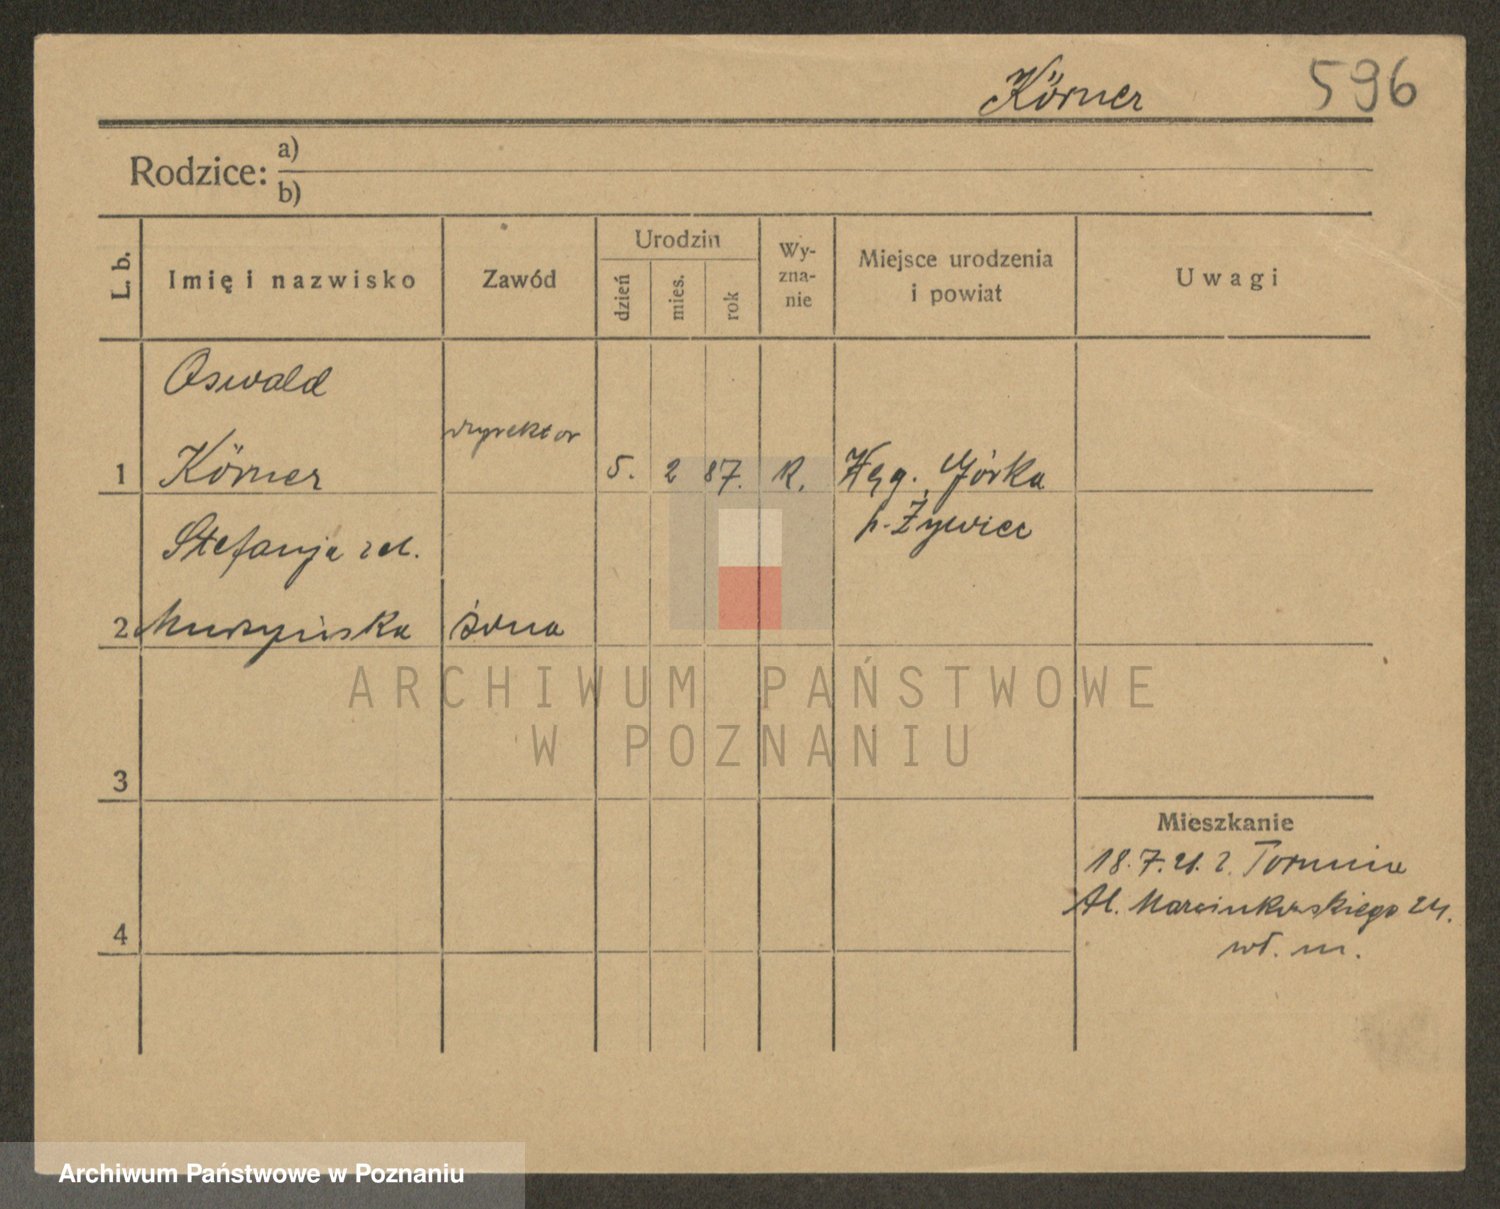 Körner 596
Rodzice: a)
b)
L. b.
Imię i nazwisko
Zawód
Urodzin
dzień
mies.
rok
Wy-
zna-
nie
Miejsce urodzenia
i powiat
Uwagi
Oswald
dyrektor
1 Körner 5. 2 87. R. Węg. Górka
p. Żywiec
Stefanja
2 żona
3
4
Mieszkanie
18.7.21. z Torunia
Al. Marcinkowskiego 24.
wł. m.
ARCHIWUM PAŃSTWOWE
W POZNANIU
Archiwum Państwowe w Poznaniu